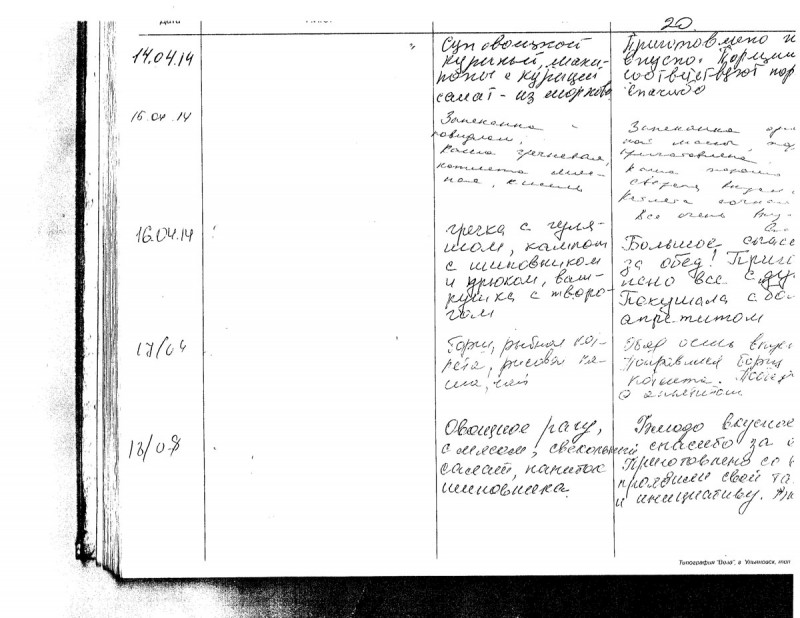 20.
14.04.14
Суп овощной
куриный, мака-
роны с курицей
салат - из моркови
Приготовлено и
вкусно. Порции
соответствуют пор
спасибо
15.04.14
Запеканка
каша гречневая,
котлета мяс-
ная, кисель
Запеканка
приготовлена
каша хорошо
сварена
Котлета сочная
Все очень вку
16.04.14
гречка с гуля-
шом, кампот
с шиповником
и урюком, ват-
рушка с творо-
гом
Большое спасе
за обед! Приго
лено все с ду
Покушала с бо
апретитом
17/04
Борщ, рыбная ко-
лета, рисовая ка-
ша, чай
Обед очень вкус
Понравился борщ
котлета.
с аппетитом
18/04
Овощное рагу,
с мясом, свекольный
салат, напиток
шиповника.
Блюдо вкусное
спасибо за
Приготовлено со
проявили свой та
и инициативу.
Типография "Вега", г. Ульяновск, тип